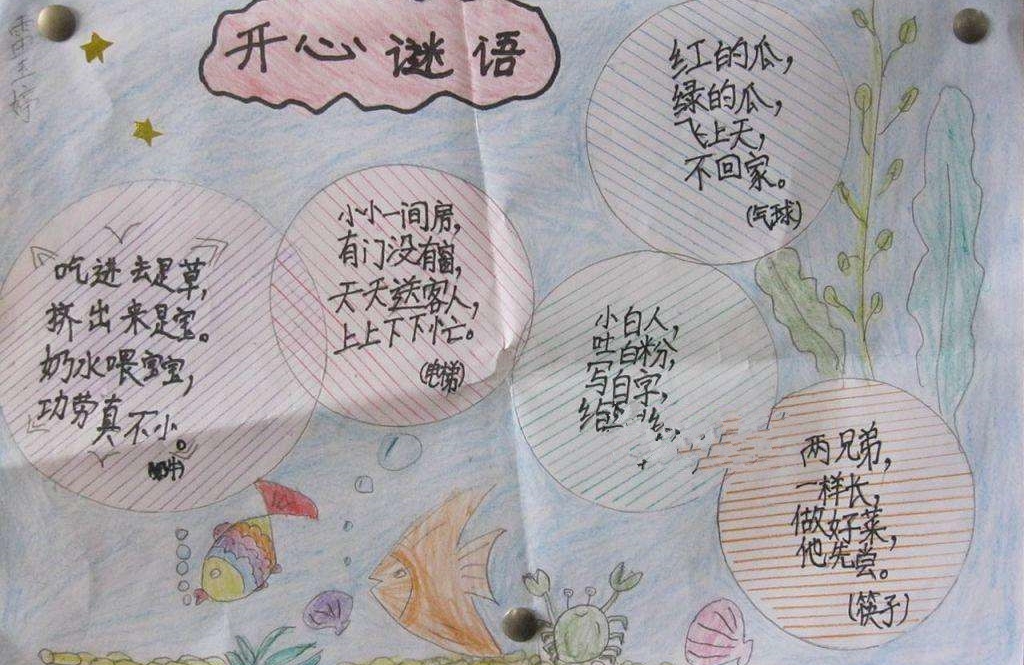 开心谜语
红的瓜，
绿的瓜，
飞上天，
不回家。
（气球）
小小一间房，
有门没有窗，
天天送客人，
上上下下忙。
（电梯）
吃进去是草，
挤出来是宝。
奶水喂宝宝，
功劳真不小。
小白人，
吐白粉，
写白字，
两兄弟，
一样长，
做好菜，
他先尝。
（筷子）